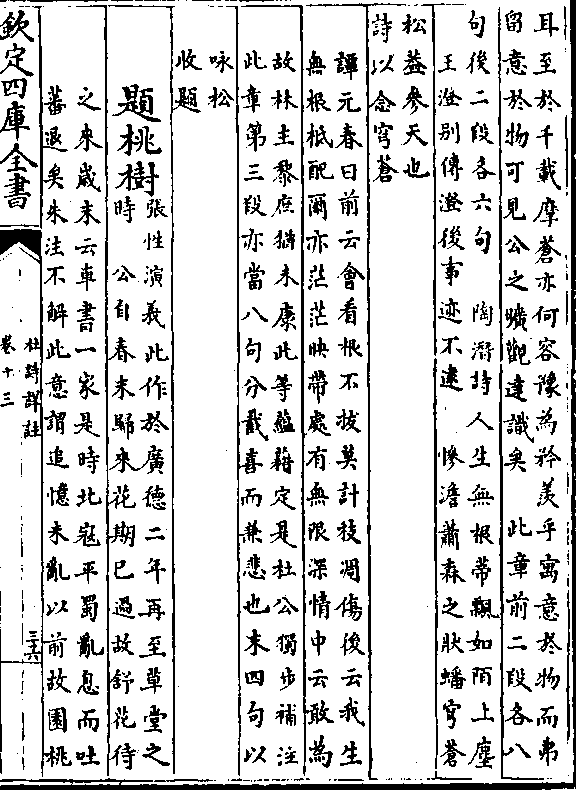 耳至於千載摩蒼亦何容豫為矜羡乎寓意於物而弗
留意於物可見公之曠觀達識矣　此章前二段各八
句後二段各六句　陶潛詩人生無根蒂飄如陌上塵
王澄别傳澄後事迹不逮　慘澹蕭森之狀蟠穹蒼
松葢參天也
詩以念穹蒼
譚元春曰前云會看根不拔莫計枝凋傷後云我生
無根柢配爾亦茫茫映帶處有無限深情中云敢為
故林主黎庶猶未康此等藴藉定是杜公獨步補注
此章第三段亦當八句分截喜而兼悲也末四句以
咏松
收題
題桃樹
張性演義此作於廣德二年再至草堂之
時　公自春末歸來花期已過故舒花待
之來嵗末云車書一家是時北寇平蜀亂息而吐
蕃退矣朱注不解此意謂追憶未亂以前故園桃
欽定四庫全書
杜詩詳註
卷十三
三六